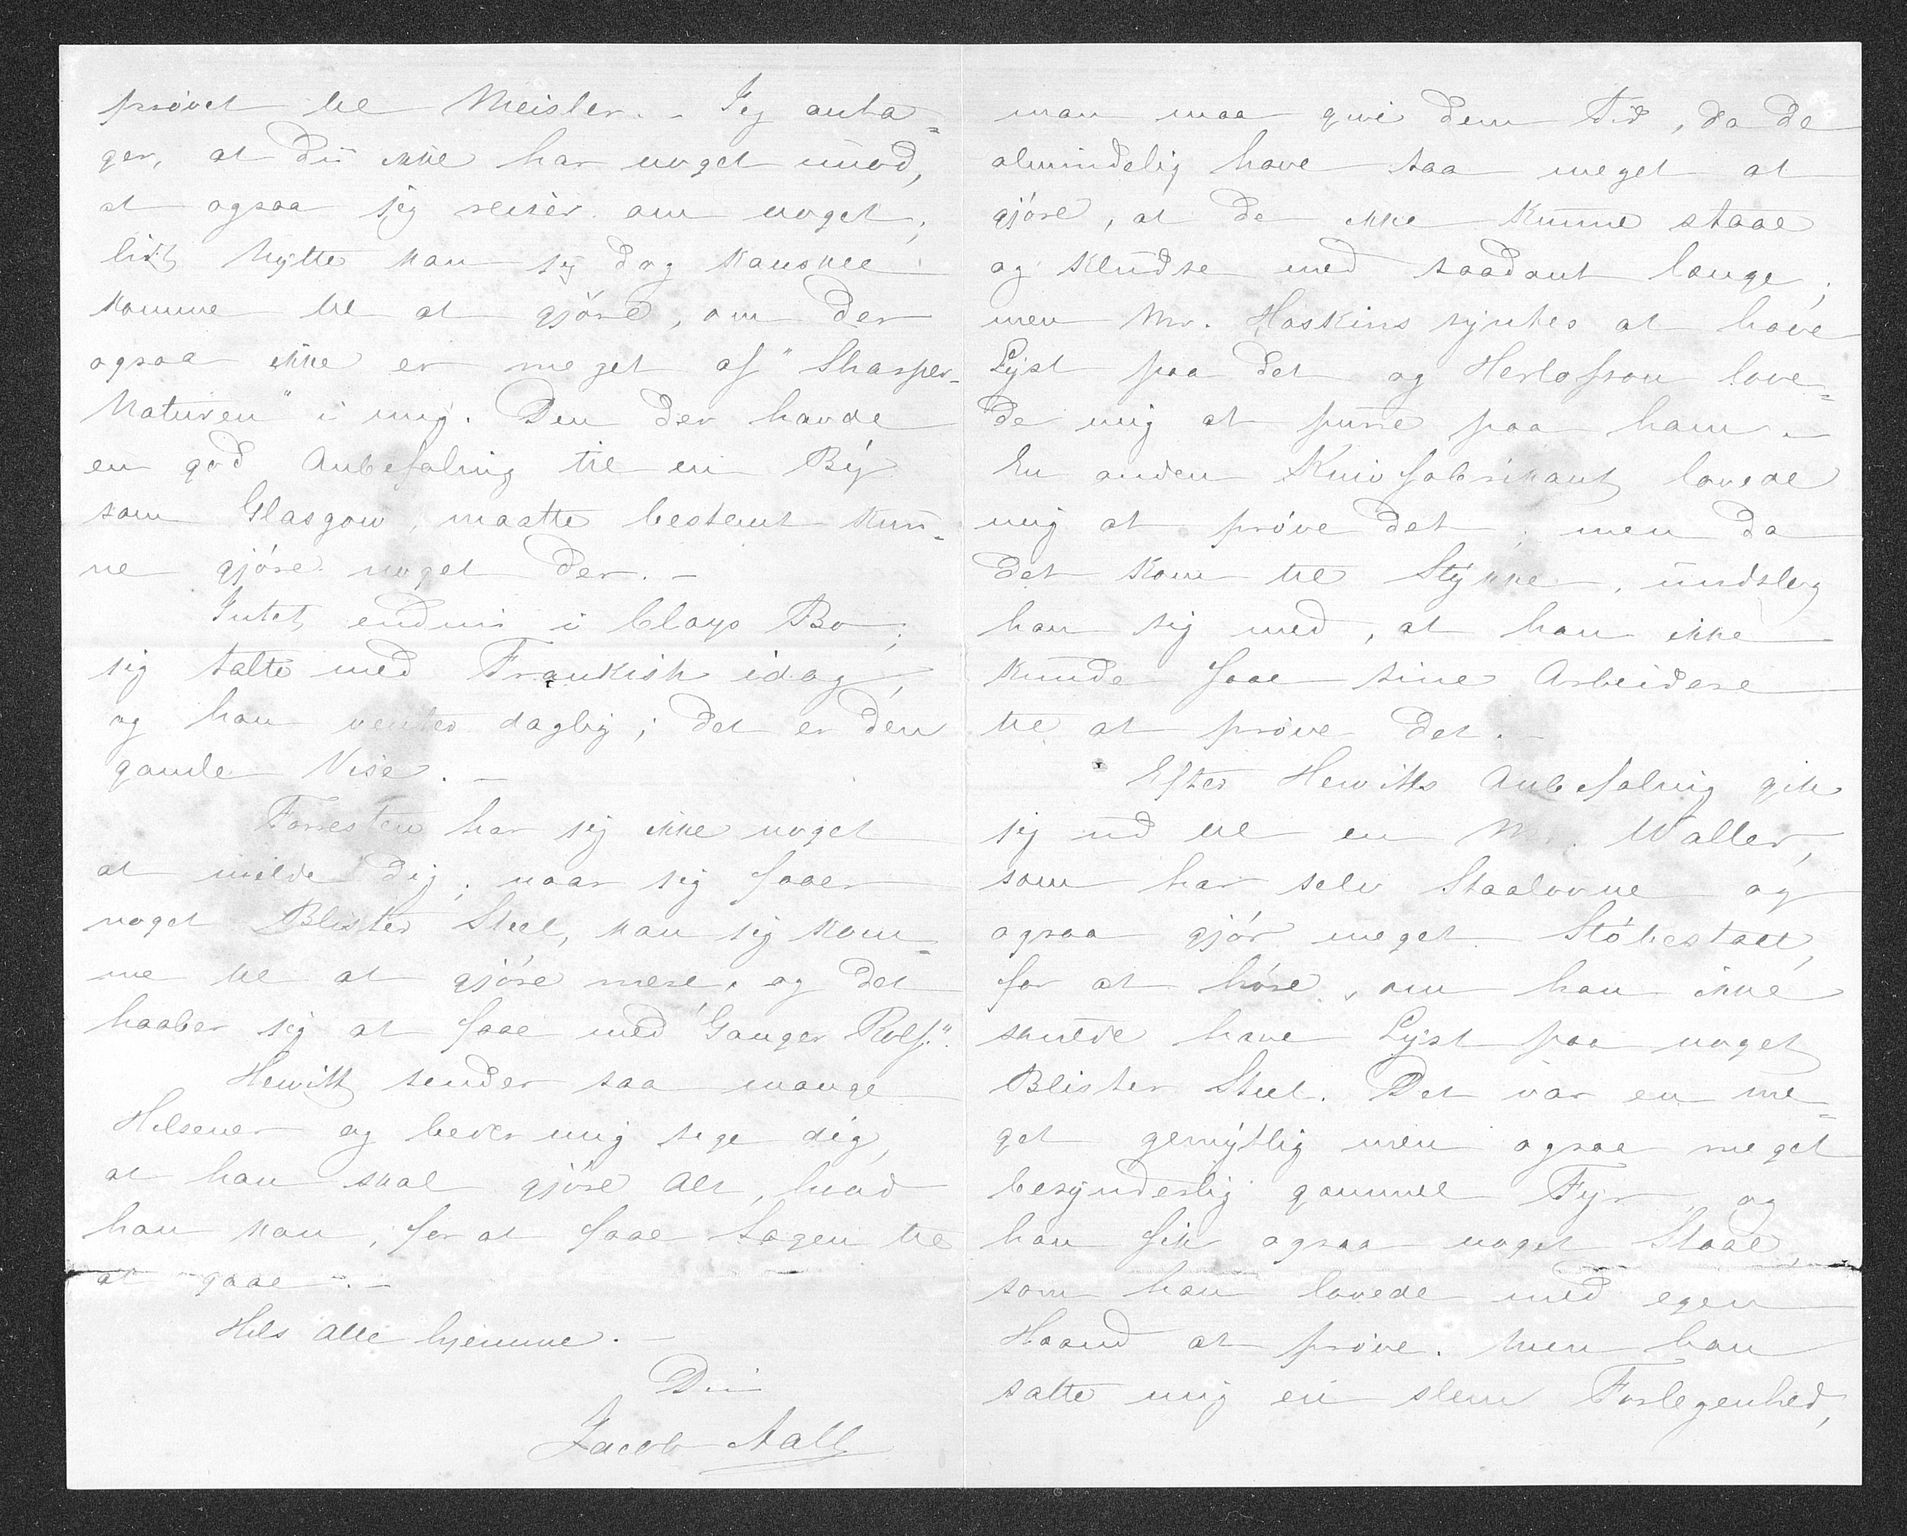 prøvet til Meisler. - Jeg anta=
ger, at Du ikke har noget imod,
at ogsaa jeg reiser om noget;
lidt Nytte kan jeg dog kanskee
komme til at gjöre, om der
ogsaa ikke er meget af "Sharper-
Naturen" i mig. Den der havde
en god Anbefaling til en By
som Glasgow, maatte bestemt kun=
ne gjöre noget der. -
Intet endnu i Clays Bo;
jeg talte med Frankish idag,
og han venter daglig; det er den
gamle Vise. -
Forresten har jeg ikke noget
at melde Dig; naar jeg faaer
noget Blister Steel, kan jeg kom=
me til at gjöre mere, og det
haaber jeg at faae med "Ganger Rolf".
Hewitt sender saa mange
Hilsener og beder mig sige dig,
at han skal gjöre Alt, hvad
han kan, for at faae Sagen til
at gaae. -
Hils Alle hjemme. -
Din
Jacob Aall
man maa give dem Tid, da de
almindelig have saa meget at
gjöre, at de ikke kunne staae
og kludse med saadant længe;
men Mr. Hoskins syntes at have
Lyst paa det og Herlofson love=
de mig at purre paa ham. -
En anden Knivfabrikant lovede
mig at pröve det; men da
det kom til Stykke, undslog
han sig med, at han ikke
kunde faae sine Arbeidere
til at pröve det. -
Efter Hewitts Anbefaling gik
jeg ud til en Mr. Waller,
som har selv Staalovne og
ogsaa gjör meget Stöbestaal,
for at höre, om han ikke
skulde have Lyst paa noget
Blister Steel. Det var en me=
get gemytlig men ogsaa meget
besynderlig gammel Fyr, og
han fik ogsaa noget Staal,
som han lovede med egen
Haand at pröve. Men han
satte mig en slem Forlegenhed,